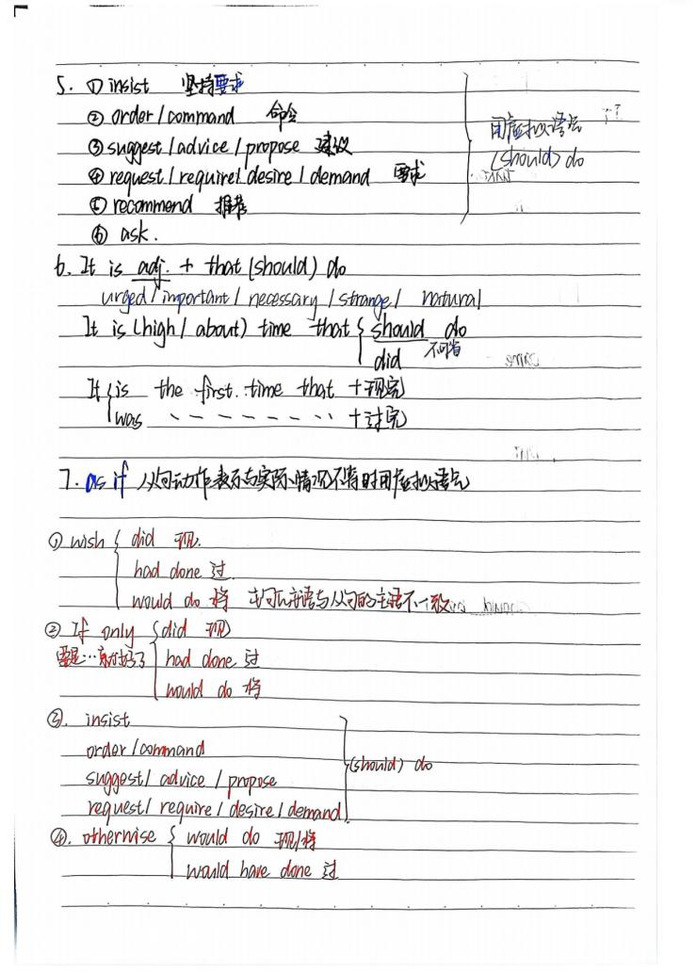 5. ① insist 坚持要求
② order / command 命令
③ suggest / advice / propose 建议
④ request / require / desire / demand 要求
⑤ recommend 推荐
⑥ ask.
用虚拟语气
(should) do
6. It is adj. + that (should) do
urged / important / necessary / strange / natural
It is (high / about) time that { should do 不可省
did
It { is the first time that + 现完
was - - - - - - - - + 过完
7. as if 从句动作表示与实际情况不符时用虚拟语气
① wish { did 现.
had done 过
would do 将 主句主语与从句的主语不一致
② If only { did 现
要是…就好了 had done 过
would do 将
③. insist
order / command
suggest / advice / propose
request / require / desire / demand.
(should) do
④. otherwise { would do 现/将
would have done 过